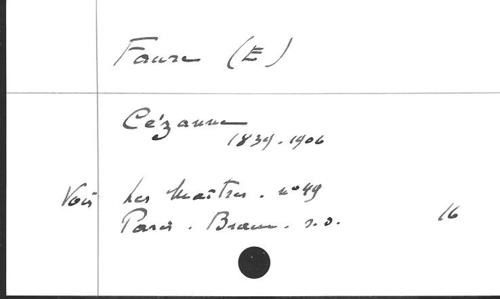 Faure (E)
Cézanne
1839-1906
Voir Les Maîtres. n°49
Paris. Braun. s.d. 16